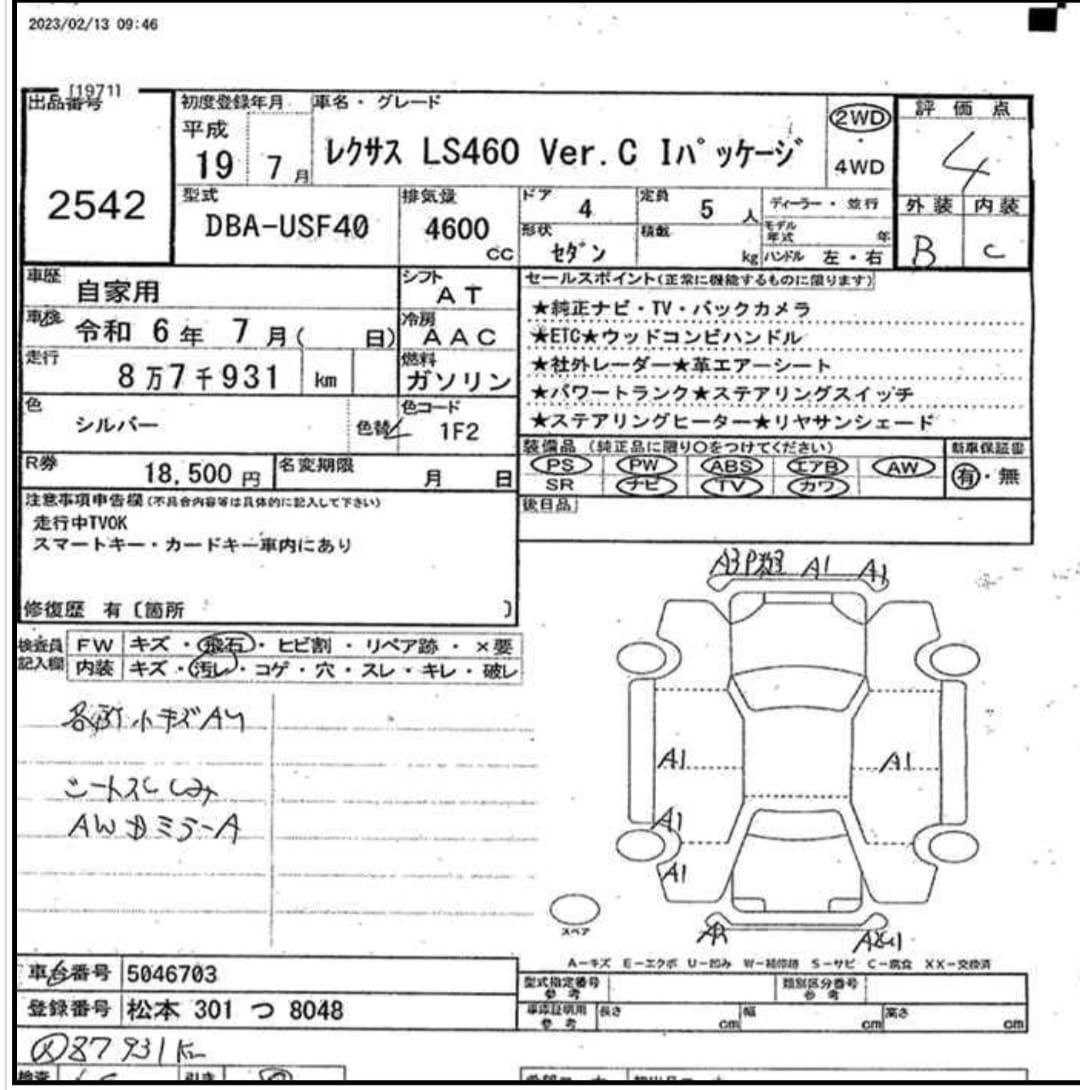 2023/02/13 09:46
[1971]
出品番号
2542
初度登録年月
平成
19 7 月
車名・グレード
レクサス LS460 Ver.C Iパッケージ
2WD
・
4WD
評価点
4
外装 内装
B C
型式
DBA-USF40
排気量
4600
cc
ドア
4
定員
5 人
形状
セダン
積載
kg
ディーラー・並行
モデル年式 年
ハンドル 左・右
車歴
自家用
シフト
AT
車検
令和 6年 7月( 日)
冷房
AAC
走行
8万7千931 km
燃料
ガソリン
色
シルバー
色替
色コード
1F2
R券
18,500 円
名変期限
月 日
セールスポイント(正常に機能するものに限ります)
★純正ナビ・TV・バックカメラ
★ETC★ウッドコンビハンドル
★社外レーダー★革エアーシート
★パワートランク★ステアリングスイッチ
★ステアリングヒーター★リヤサンシェード
装備品 (純正品に限り○をつけてください)
PS PW ABS エアB AW
SR ナビ TV カワ
新車保証書
有・無
後日品
注意事項申告欄(不具合内容等は具体的に記入して下さい)
走行中TVOK
スマートキー・カードキー車内にあり
修復歴 有 〔箇所 〕
検査員記入欄
FW キズ・飛石・ヒビ割・リペア跡・×要
内装 キズ・汚レ・コゲ・穴・スレ・キレ・破レ
各所小キズAU
シートスレ シミ
AW ミラーA
A1 A1
A1 A1
A1
A1
スペア
A－キズ E－エクボ U－凹み W－補修跡 S－サビ C－腐食 XX－交換済
車台番号 5046703
登録番号 松本 301 つ 8048
型式指定番号
参考
類別区分番号
参考
車庫証明用
参考
長さ cm 幅 cm 高さ cm
87931km
検査
引き